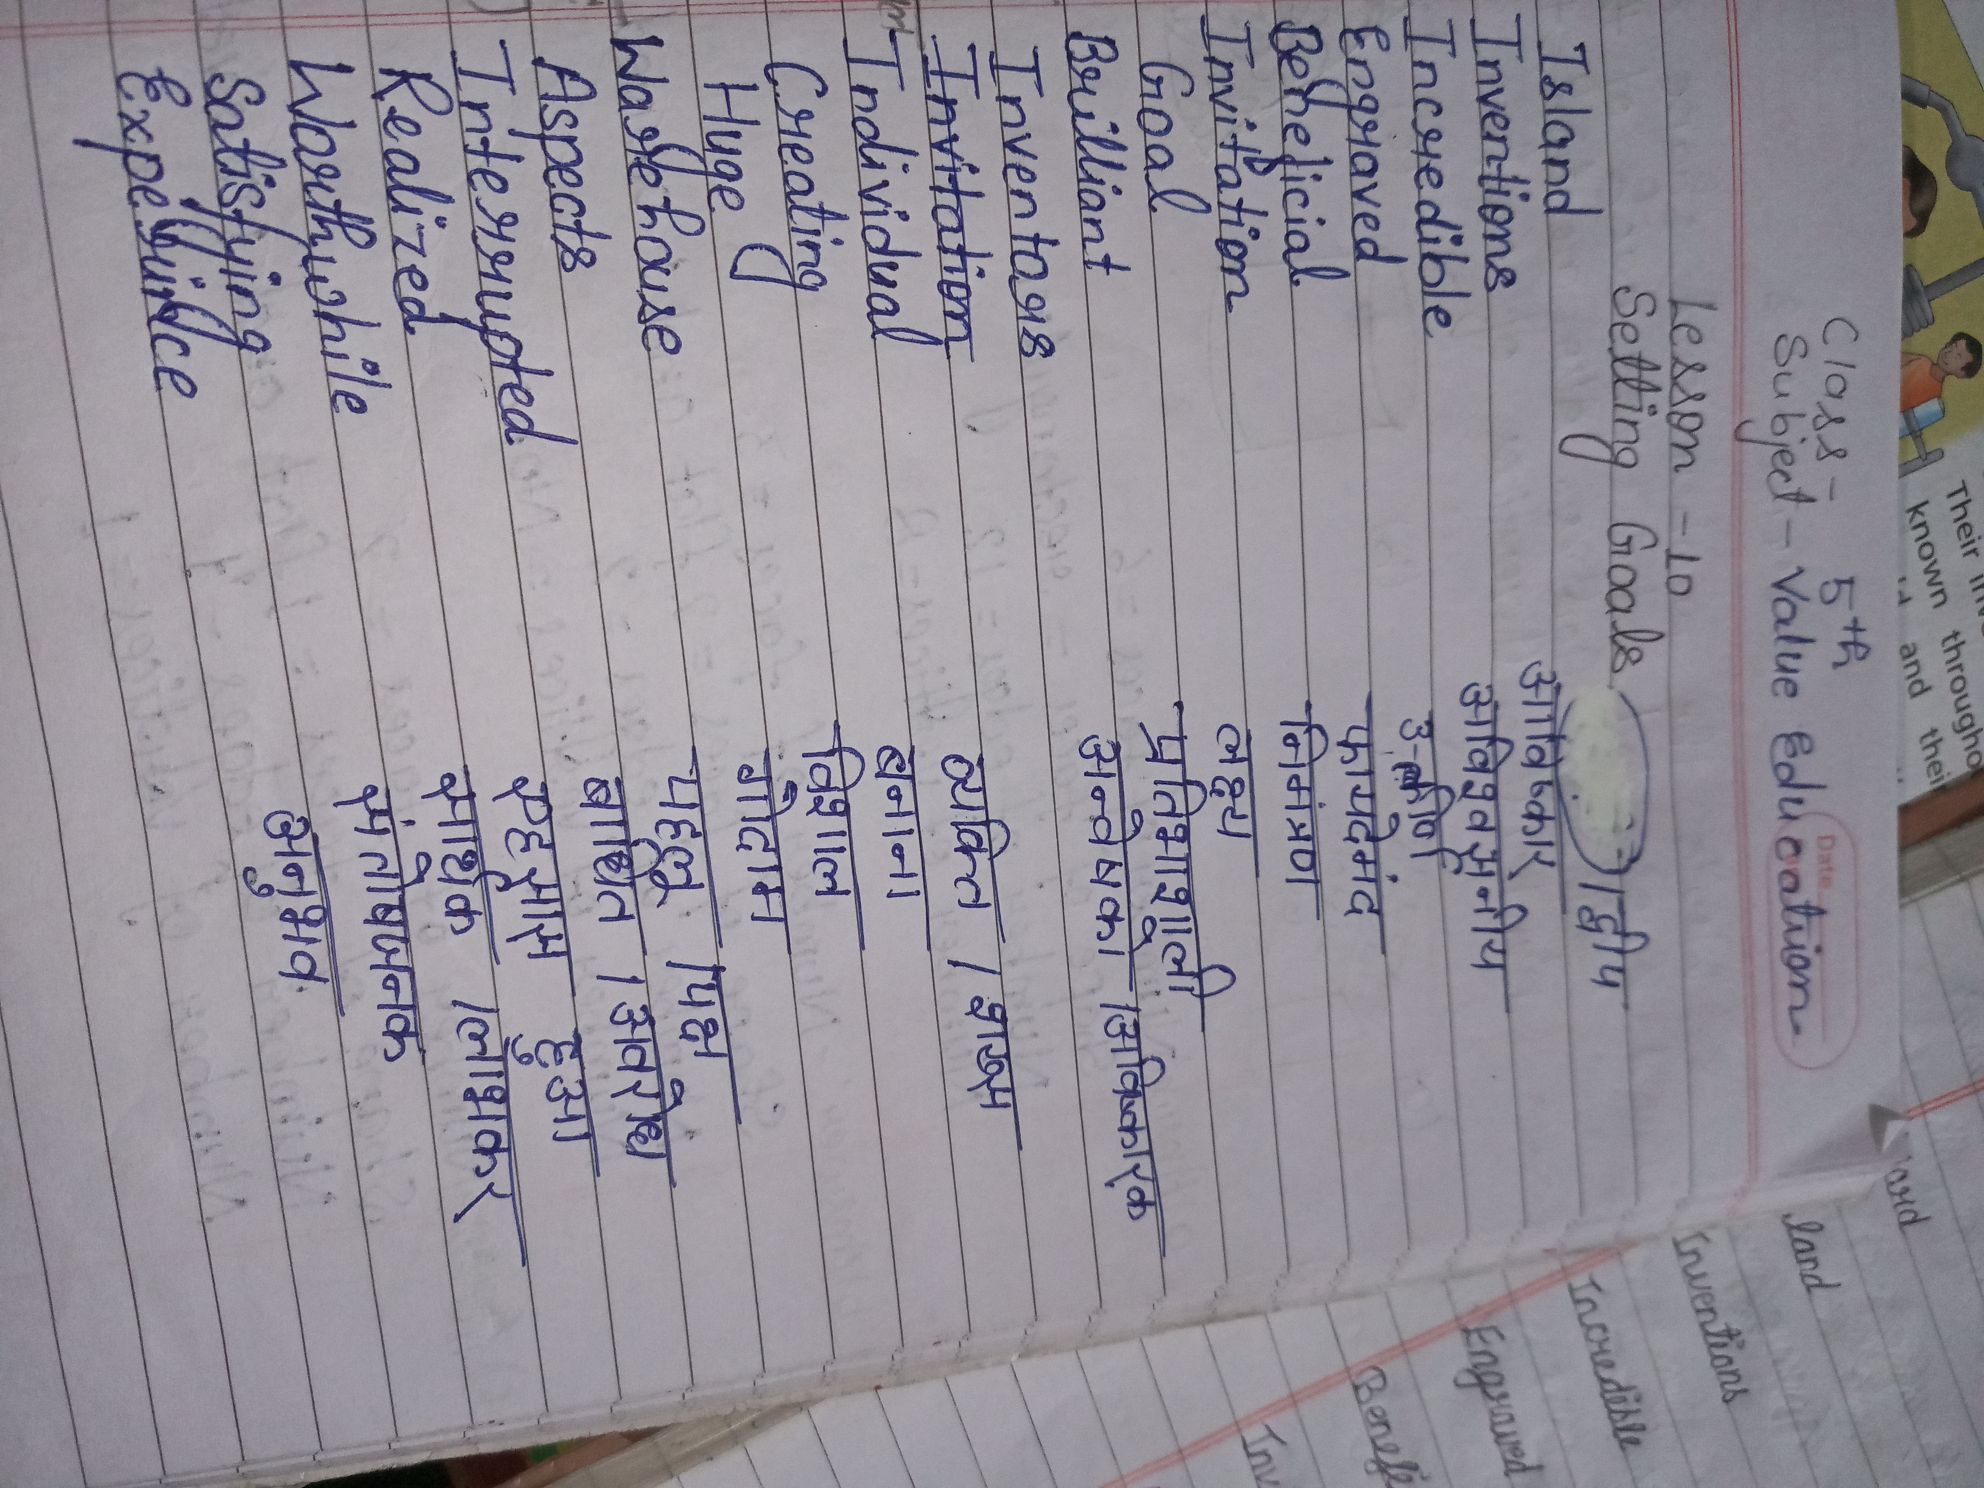 Class - 5th
Subject - Value Education
Date
Lesson - 10
Setting Goals
Island /द्वीप
Inventions आविष्कार
Incredible अविश्वसनीय
Engraved उत्कीर्ण
Benelicial फायदेमंद
Invitation निमंत्रण
Goal लक्ष्य
Brilliant प्रतिभाशाली
Inventors अन्वेषको /अविष्कारक
Invitation
Individual व्यक्ति / शख्स
Creating बनाना
Huge विशाल
Warehouse गोदाम
Aspects पहलू /पक्ष
Interrupted बाधित /अवरोध
Realized एहसास हुआ
Worthwhile सार्थक /लाभकर
Satisfying संतोषजनक
Experience अनुभव
Their
known througho
and their
land
Inventions
Incredible
Engraved
Benefi
Inv